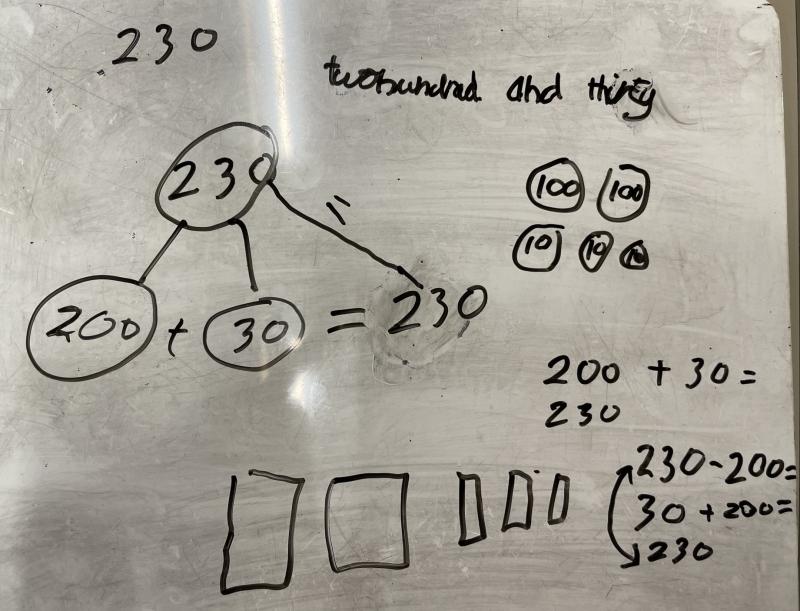 230
twohundred and thirty
230
100 100
10 10 10
=
200 + 30 = 230
200 + 30 =
230
230-200=
30+200=
230